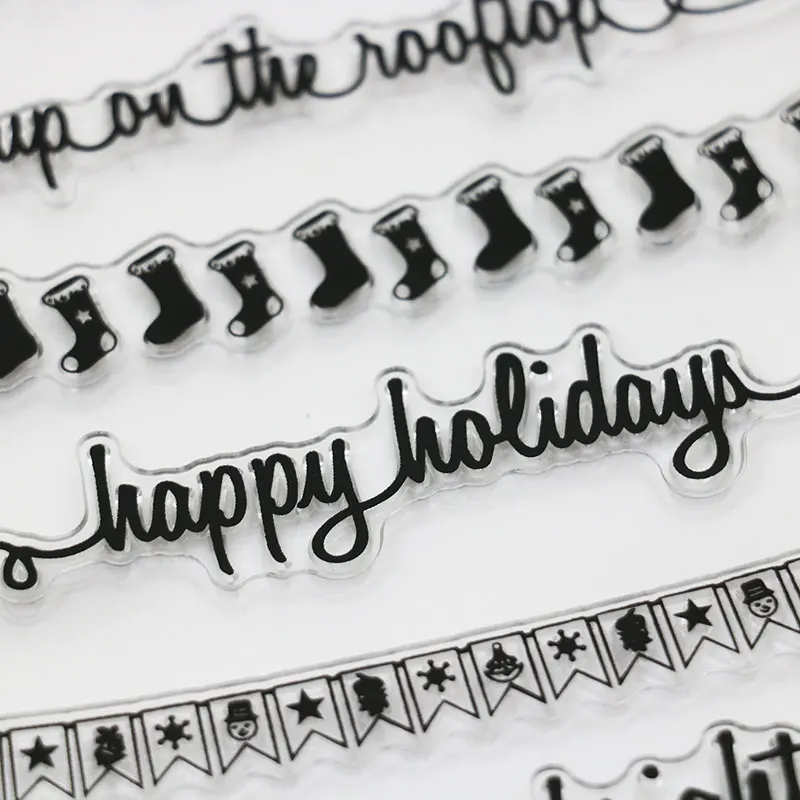 up on the rooftop
happy holidays